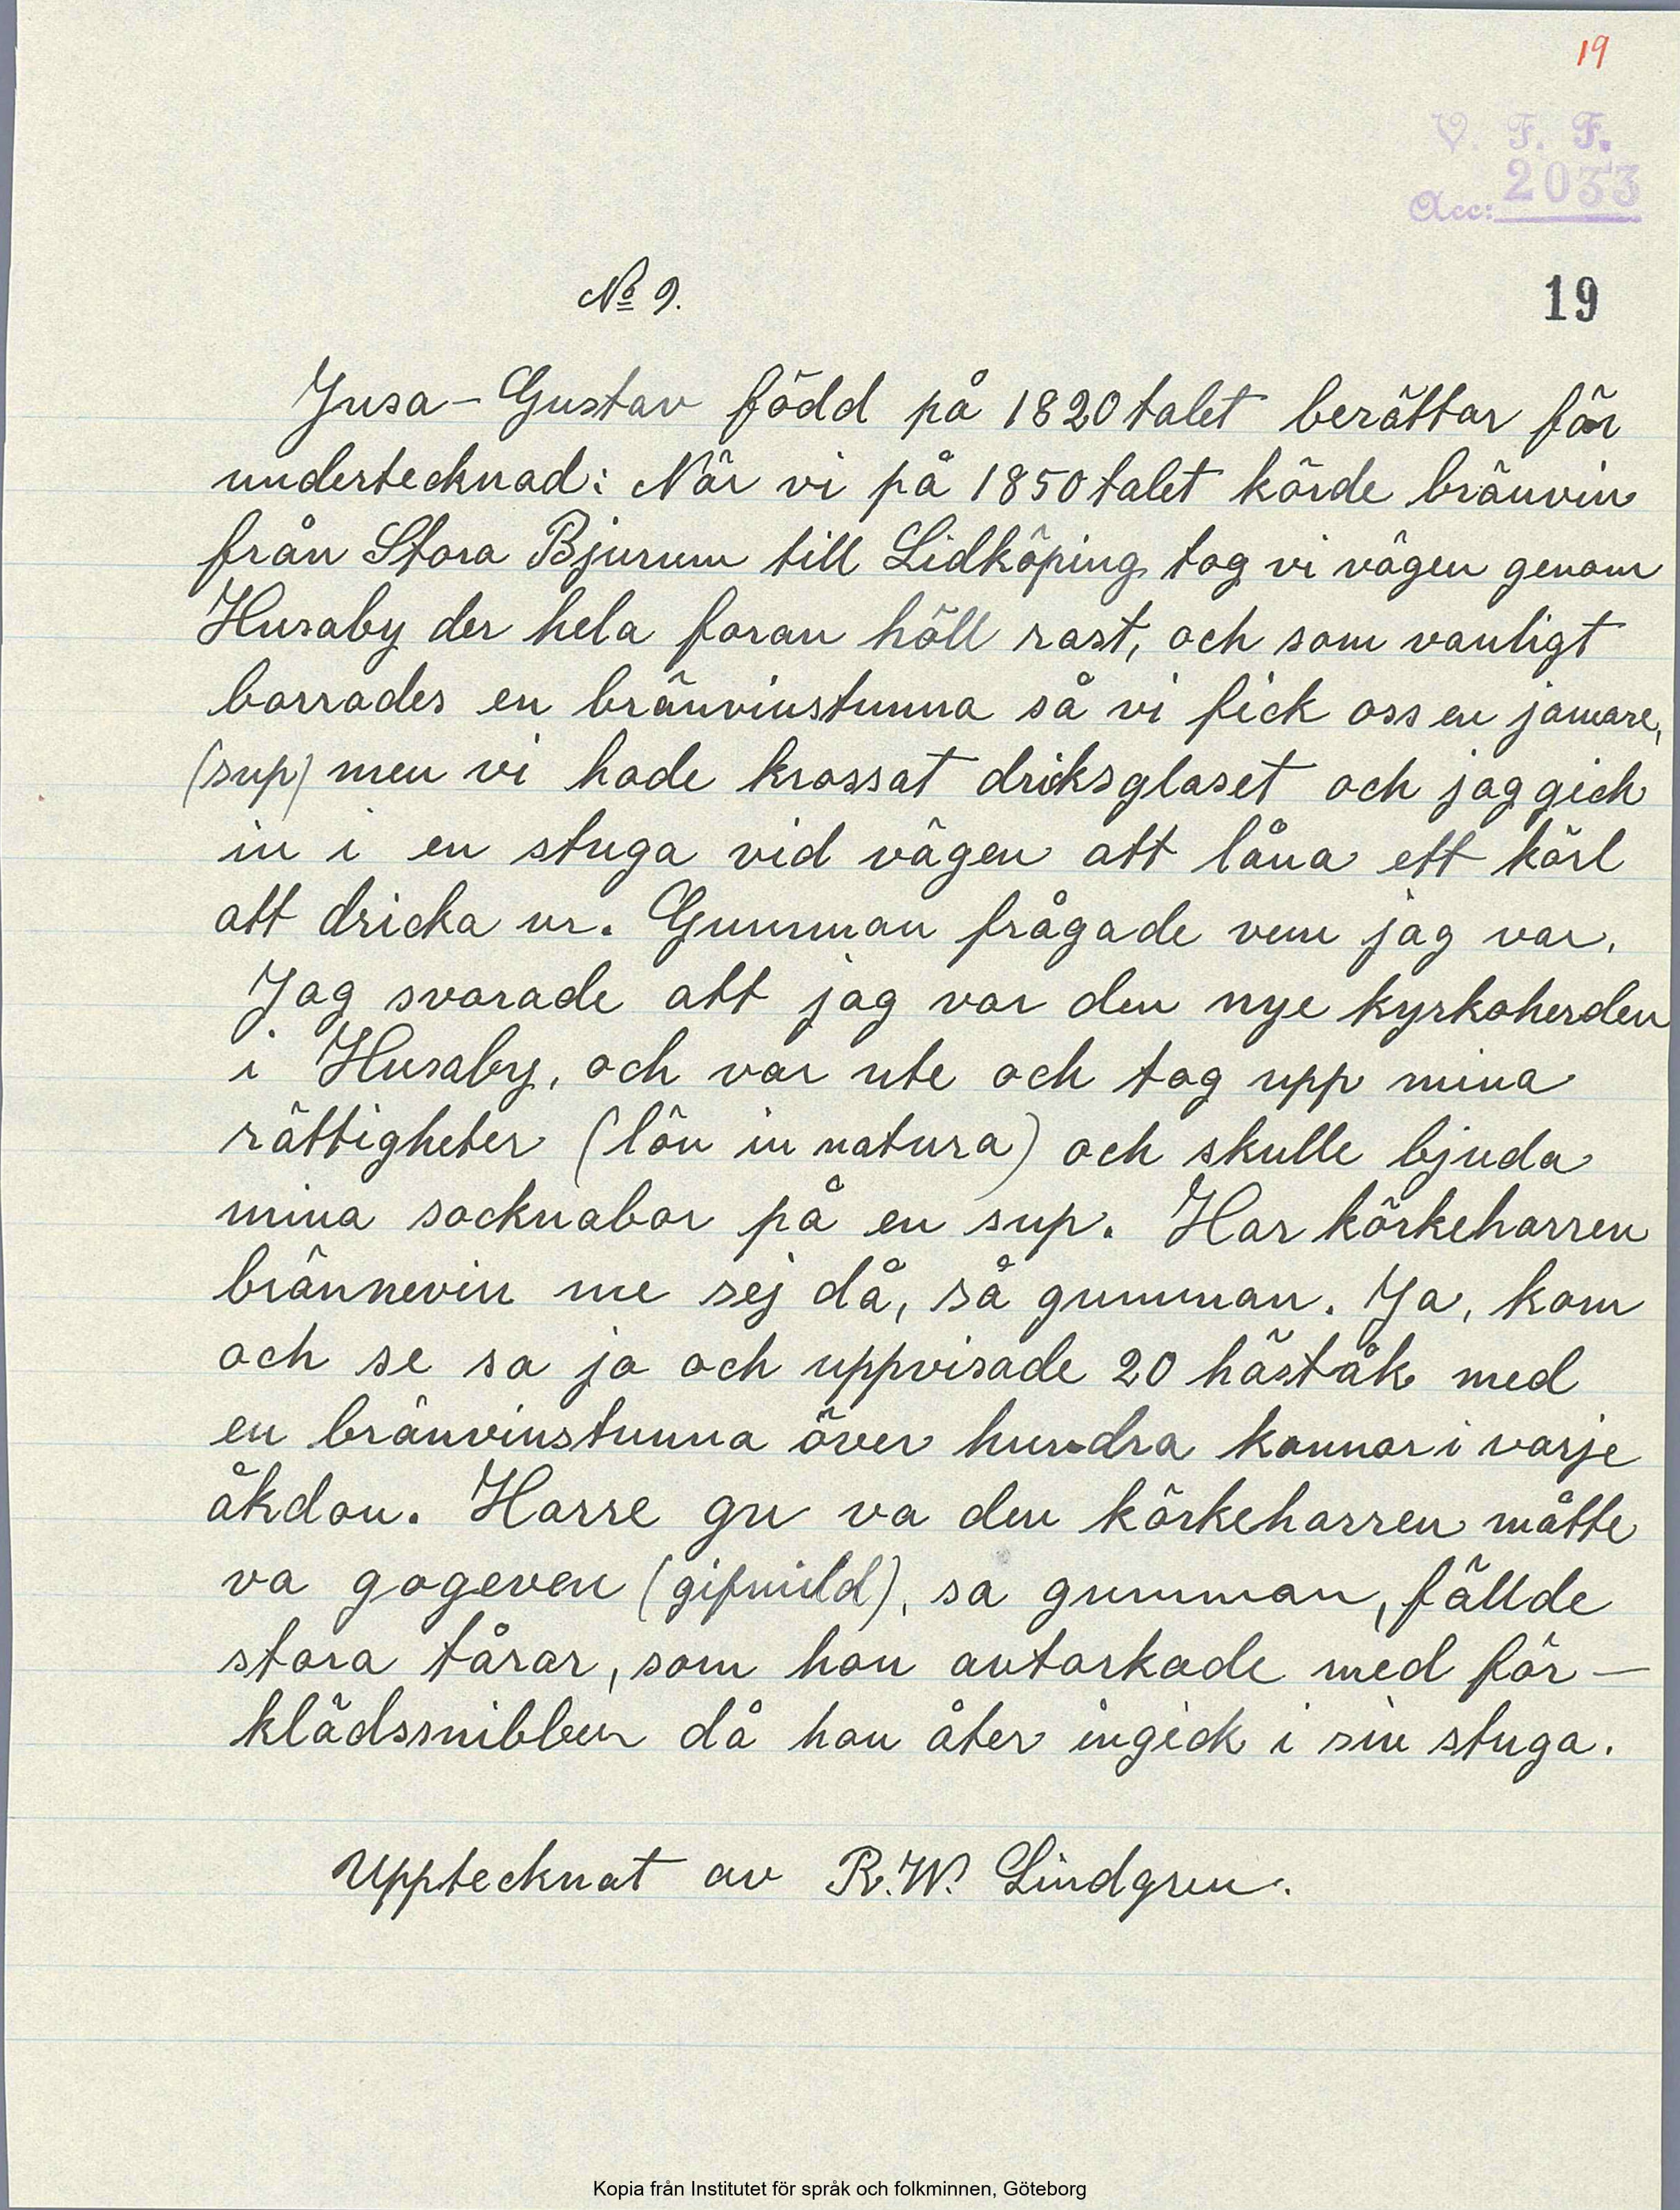 19
V. F. F.
Acc: 2033
№ 9.
19
Jusa-Gustav född på 1820 talet berättar för
undertecknad: När vi på 1850 talet körde bränvin
från Stora Bjurum till Lidköping, tog vi vägen genom
Husaby der hela foran höll rast, och som vanligt
borrades en bränvinstunna så vi fick oss en jamare,
(sup) men vi hade krossat driksglaset och jag gick
in i en stuga vid vägen att låna ett kärl
att dricka ur. Gumman frågade vem jag var.
Jag svarade att jag var den nye kyrkoherden
i Husaby, och var ute och tog upp mina
rättigheter (lön in natura) och skulle bjuda
mina socknabor på en sup. Har körkeharren
brännevin me sej då, så gumman. Ja, kom
och se sa ja och uppvisade 20 häståk med
en bränvinstunna över hundra kannor i varje
åkdon. Harre gu va den körkeharren måtte
va gogeven (gifmild), sa gumman, fällde
stora tårar, som hon avtorkade med för-
klädssnibben då hon åter ingick i sin stuga.
Upptecknat av R.W. Lindgren.
Kopia från Institutet för språk och folkminnen, Göteborg